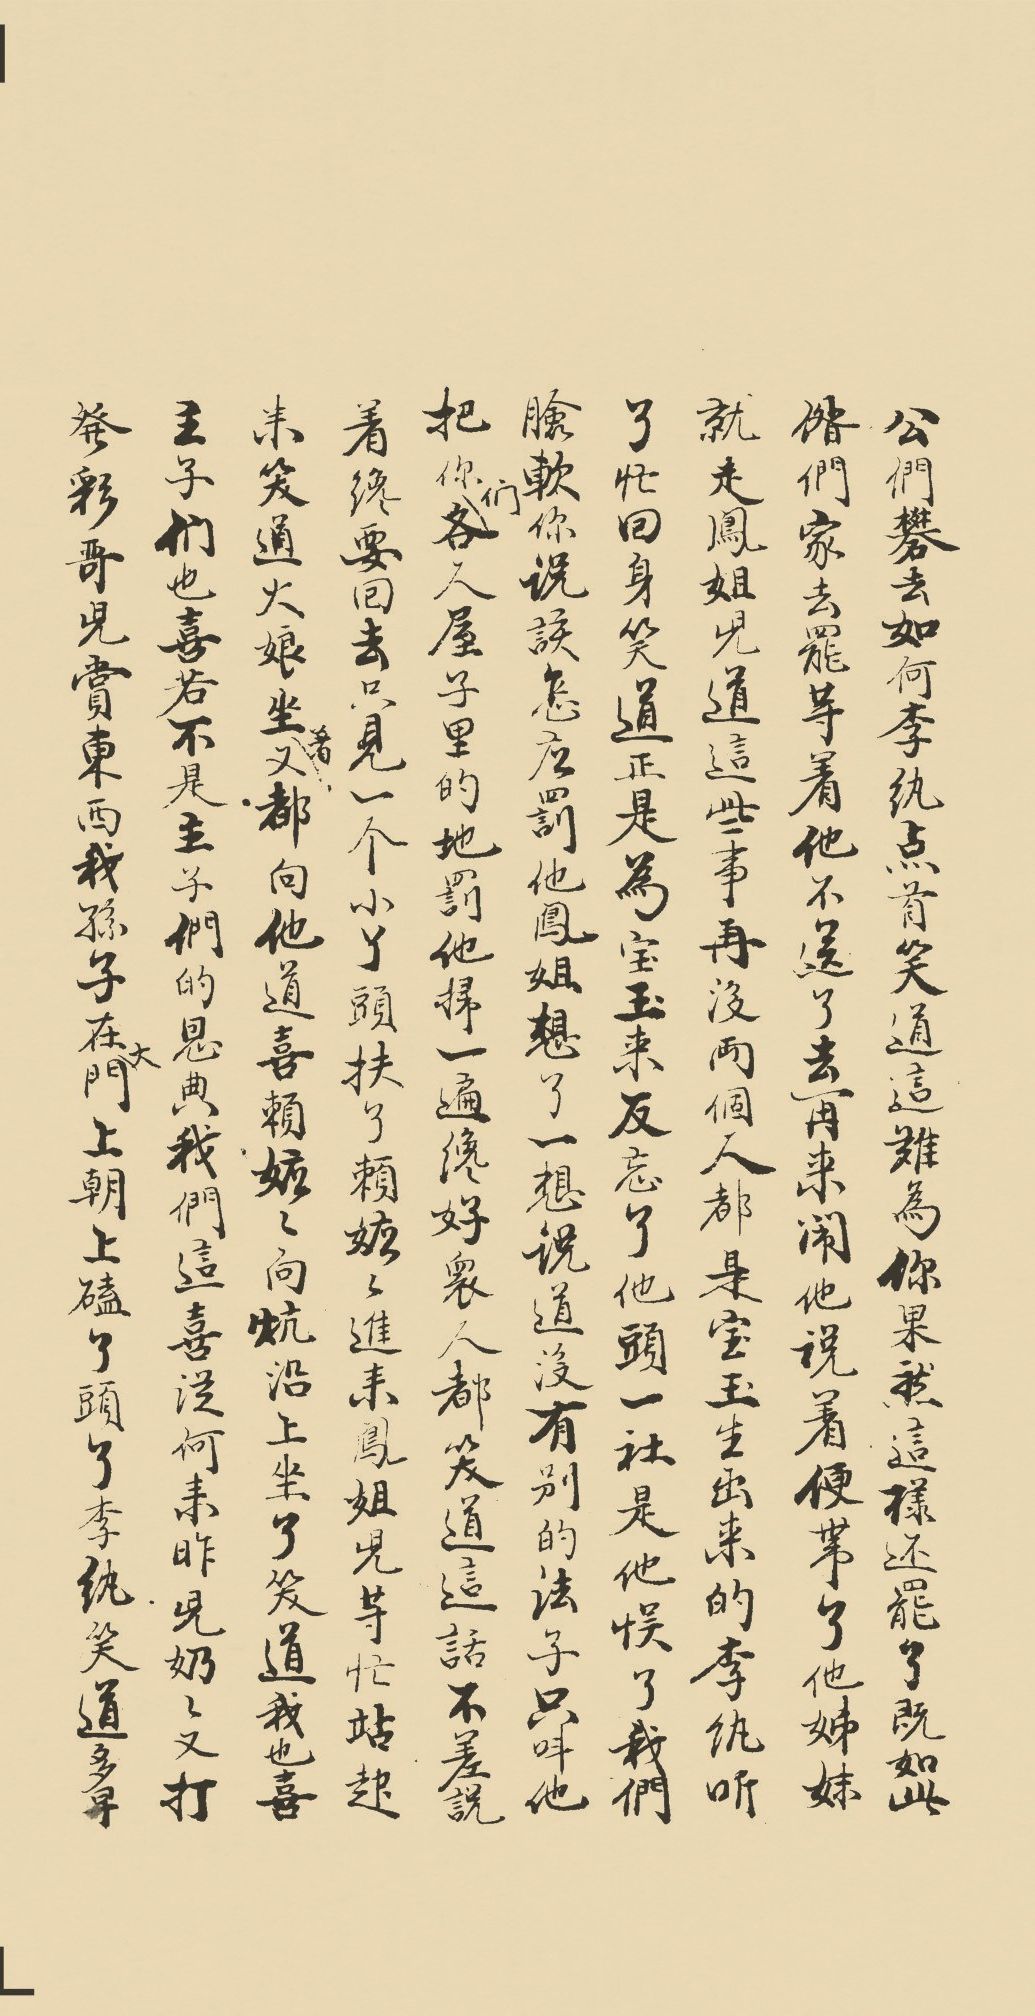 公們攀去如何李紈点首笑道這難為你果然這樣還罷了既如此
偺們家去罷等着他不送了去再来闹他说着便带了他姊妹
就走鳳姐児道這些事再没两個人都是宝玉生出来的李纨听
了忙回身笑道正是為宝玉来反忘了他頭一社是他悮了我們
臉軟你说該怎庅罰他鳳姐想了一想说道没有别的法子只呌他
把你们各人屋子里的地罰他掃一遍纔好衆人都笑道這話不差説
着纔要回去只見一个小丫頭扶了頼嬷〻進来鳳姐児等忙站起
来笑道大娘坐着又都向他道喜頼嬷〻向炕沿上坐了笑道我也喜
主子们也喜若不是主子們的恩典我們這喜従何来昨児奶〻又打
發彩哥児賞東西我孫子在大門上朝上磕了頭了李紈笑道多早